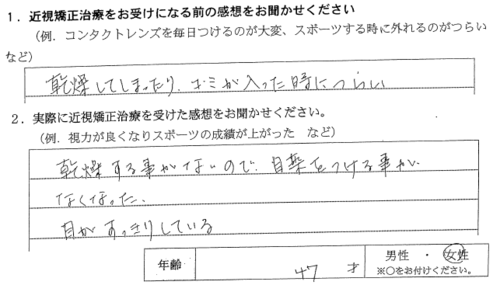 1．近視矯正治療をお受けになる前の感想をお聞かせください
(例．コンタクトレンズを毎日つけるのが大変、スポーツする時に外れるのがつらい
など)
乾燥してしまったり、ゴミが入った時につらい
2．実際に近視矯正治療を受けた感想をお聞かせください。
(例．視力が良くなりスポーツの成績が上がった　など)
乾燥する事がないので、目薬をつける事が
なくなった。
目がすっきりしている
年齢　47　才　男性　・　女性
※○をお付けください。